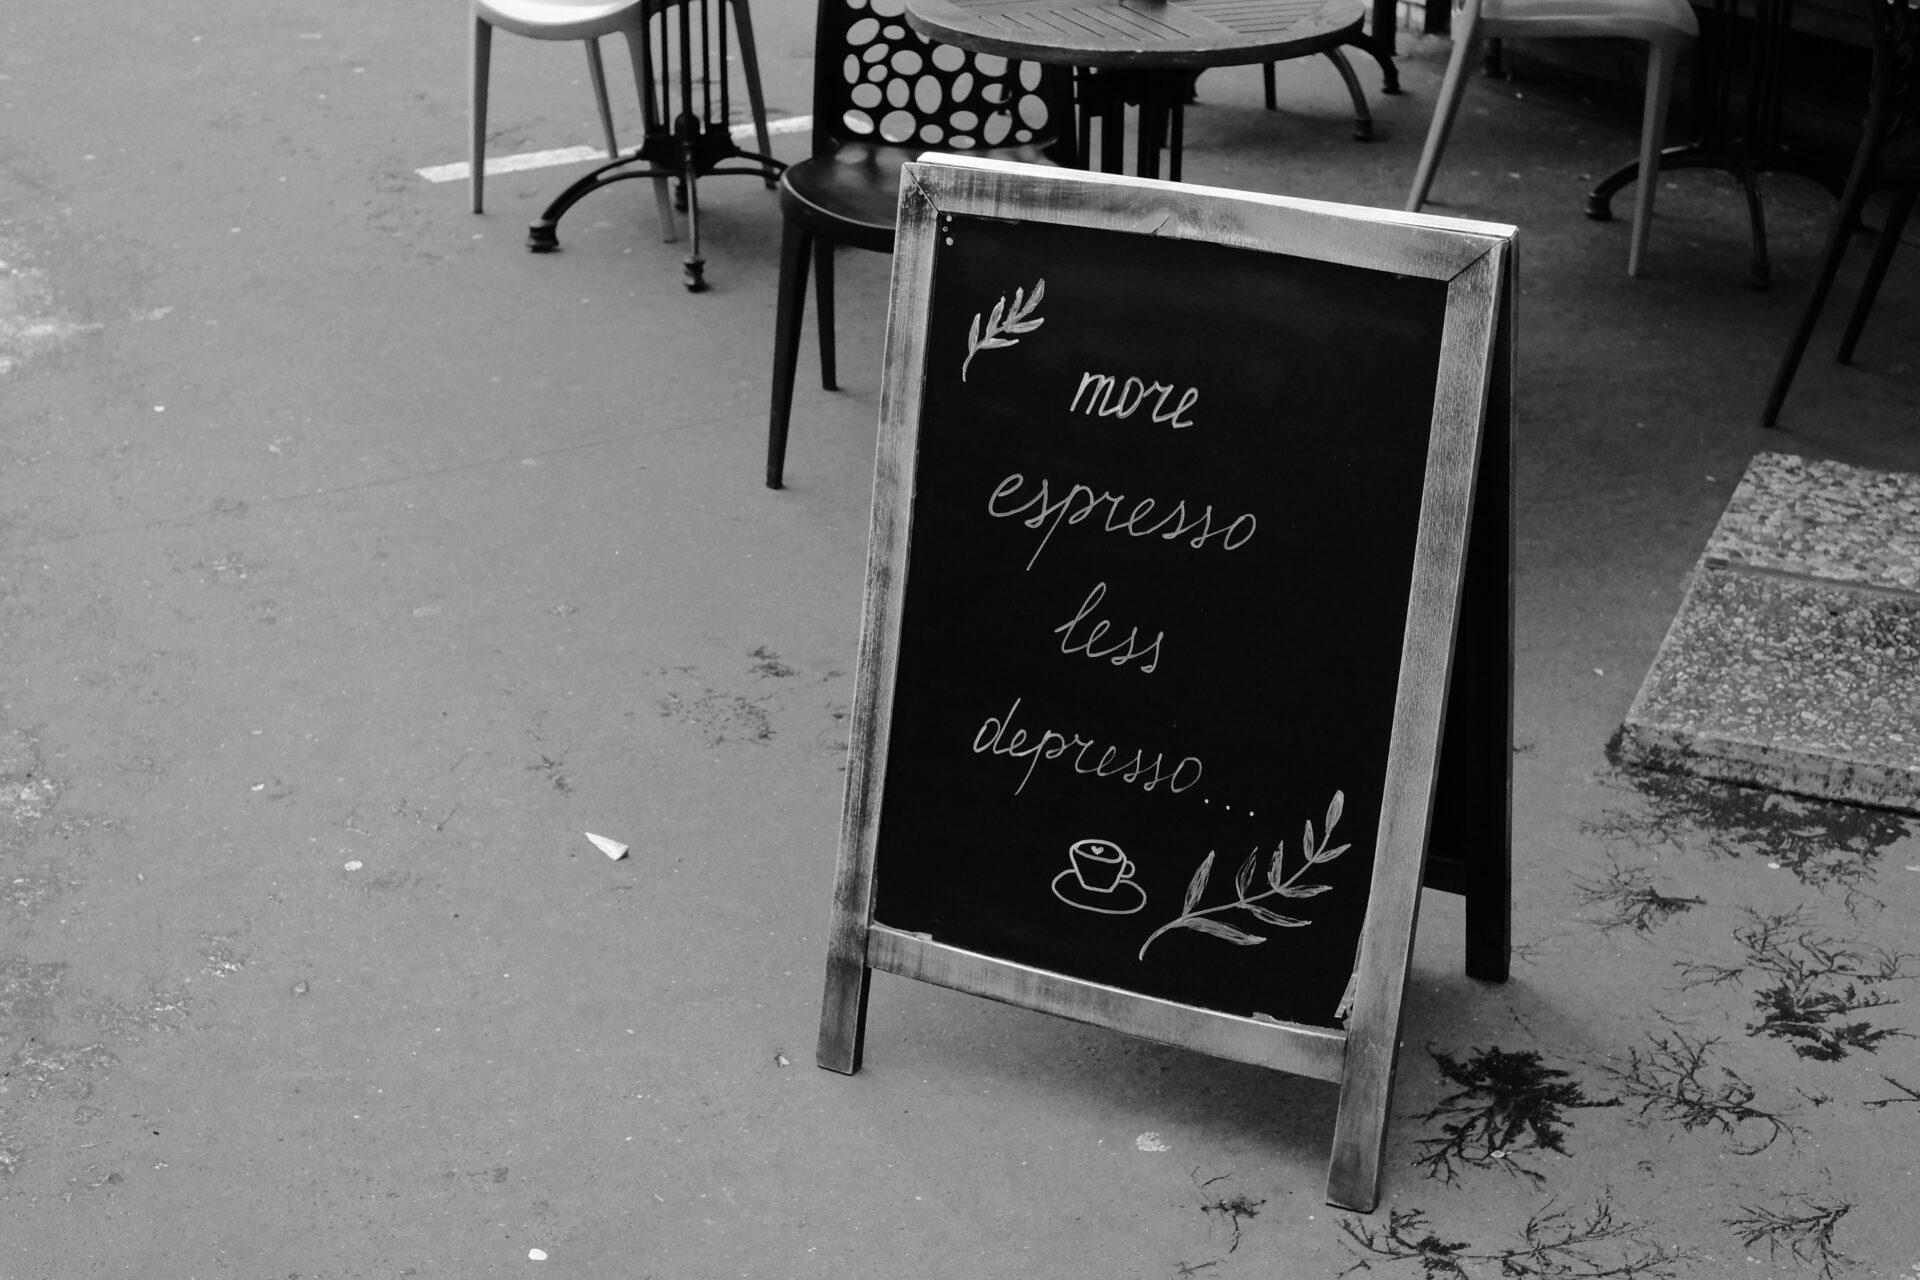 more
espresso
less
depresso...